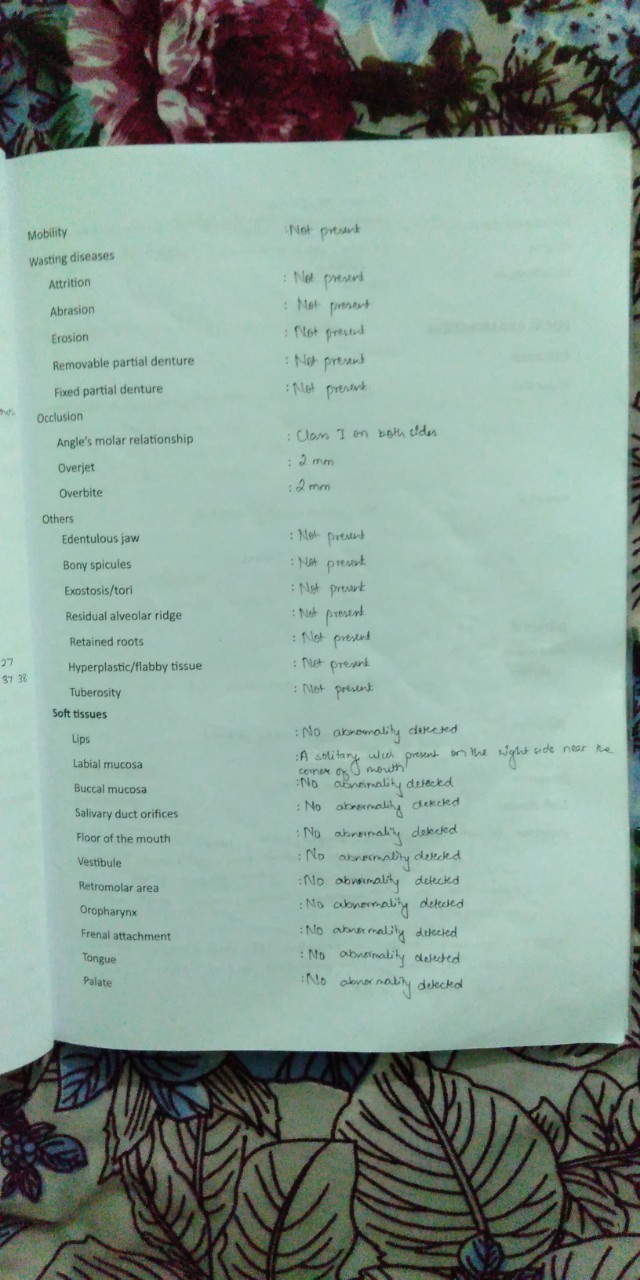 Mobility : Not present
Wasting diseases
Attrition : Not present
Abrasion : Not present
Erosion : Not present
Removable partial denture : Not present
Fixed partial denture : Not present
Occlusion
Angle's molar relationship : Class I on both sides
Overjet : 2 mm
Overbite : 2 mm
Others
Edentulous jaw : Not present
Bony spicules : Not present
Exostosis/tori : Not present
Residual alveolar ridge : Not present
27
Retained roots : Not present
37 38
Hyperplastic/flabby tissue : Not present
Tuberosity : Not present
Soft tissues
Lips : No abnormality detected
Labial mucosa : A solitary ulcer present on the right side near the
corner of mouth
Buccal mucosa : No abnormality detected
Salivary duct orifices : No abnormality detected
Floor of the mouth : No abnormality detected
Vestibule : No abnormality detected
Retromolar area : No abnormality detected
Oropharynx : No abnormality detected
Frenal attachment : No abnormality detected
Tongue : No abnormality detected
Palate : No abnormality detected